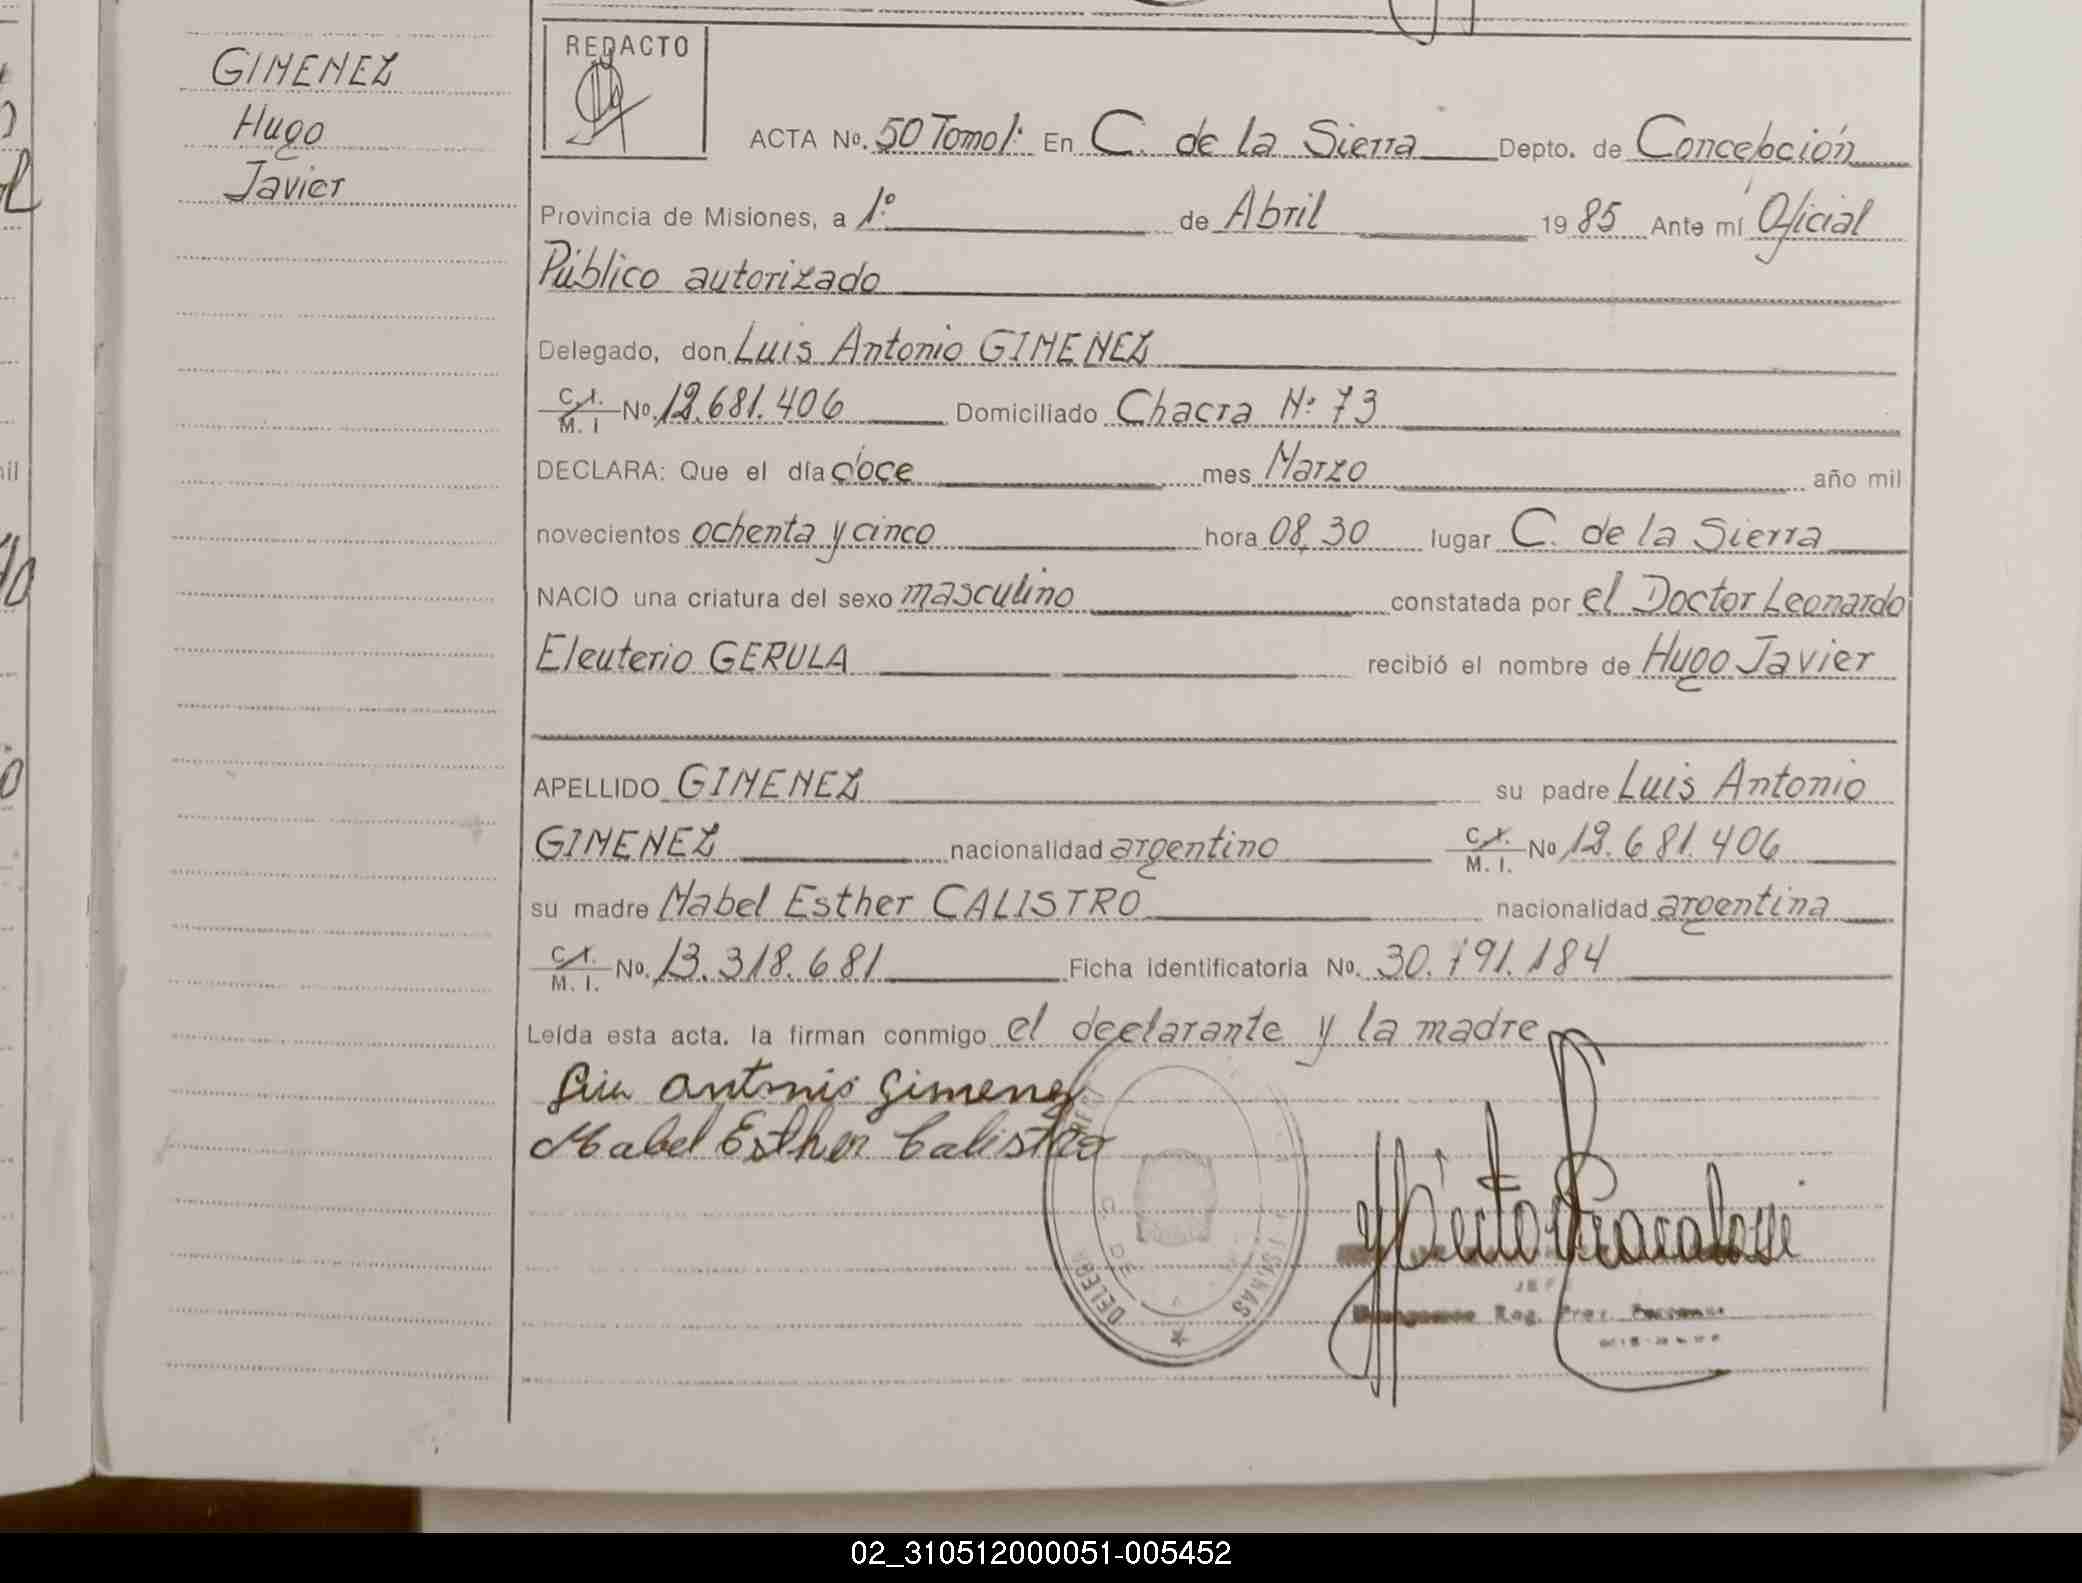 GIMENEZ
Hugo
Javier
REDACTO
ACTA No. 50 Tomo 1º En C. de la Sierra Depto. de Concepción
Provincia de Misiones, a 1º de Abril 1985 Ante mí Oficial
Público autorizado
Delegado, don Luis Antonio GIMENEZ
C.I. M. I No. 12.681.406 Domiciliado Chacra Nº 73
DECLARA: Que el día doce mes Marzo año mil
novecientos ochenta y cinco hora 08,30 lugar C. de la Sierra
NACIO una criatura del sexo masculino constatada por el Doctor Leonardo
Eleuterio GERULA recibió el nombre de Hugo Javier
APELLIDO GIMENEZ su padre Luis Antonio
GIMENEZ nacionalidad argentino C.I. M. I. No 12.681.406
su madre Mabel Esther CALISTRO nacionalidad argentina
C.I. M. I. No. 13.318.681 Ficha identificatoria No. 30.791.184
Leída esta acta. la firman conmigo el declarante y la madre
Luis Antonio Gimenez
Mabel Esther Calistro
JEFE
Reg. Prov.
02_310512000051-005452